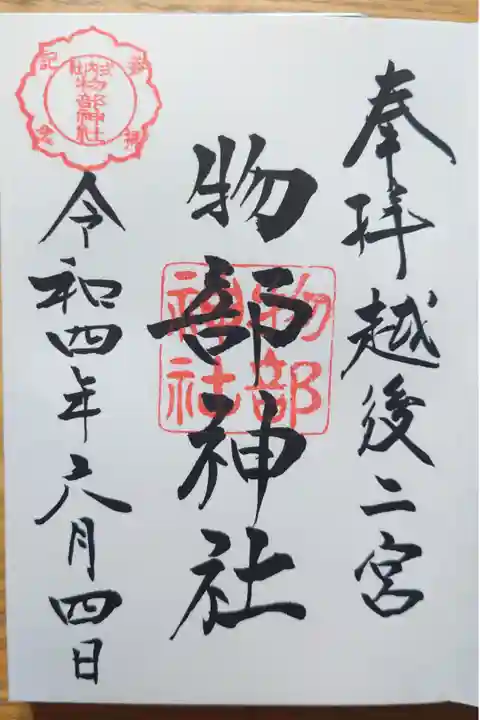 奉拝 越後二宮
物部神社
令和四年六月四日
物部神社
式内
物部神社
参拝記念